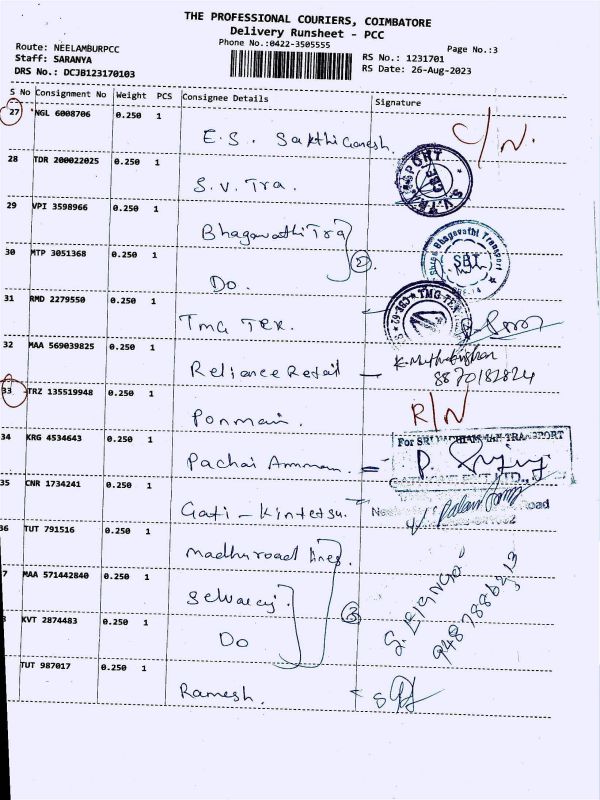 THE PROFESSIONAL COURIERS, COIMBATORE
Delivery Runsheet - PCC
Phone No.:0422-3505555
Page No.:3
Route: NEELAMBURPCC
Staff: SARANYA
DRS No.: DCJB123170103
RS No.: 1231701
RS Date: 26-Aug-2023
S No Consignment No Weight PCS Consignee Details Signature
27 NGL 6008706 0.250 1 E.S. Sakthi Ganesh C/N.
28 TDR 200022025 0.250 1 S.V. Tra.
29 VPI 3598966 0.250 1 Bhagavathi Tra
Shree Bhagavathi Transport
SBT
30 MTP 3051368 0.250 1 Do. 2
31 RMD 2279550 0.250 1 TMG TEX.
TMG TEX
32 MAA 569039825 0.250 1 Reliance Retail
8870182824
33 TRZ 135519948 0.250 1 Ponmani. R/N
34 KRG 4534643 0.250 1 Pachai Amman.
For
35 CNR 1734241 0.250 1 Gati - Kintetsu.
Road
36 TUT 791516 0.250 1 Madhu road lines
7 MAA 571442840 0.250 1 Selvaraj.
KVT 2874483 0.250 1 Do 3
S. Elango
9487886213
TUT 987017 0.250 1 Ramesh.